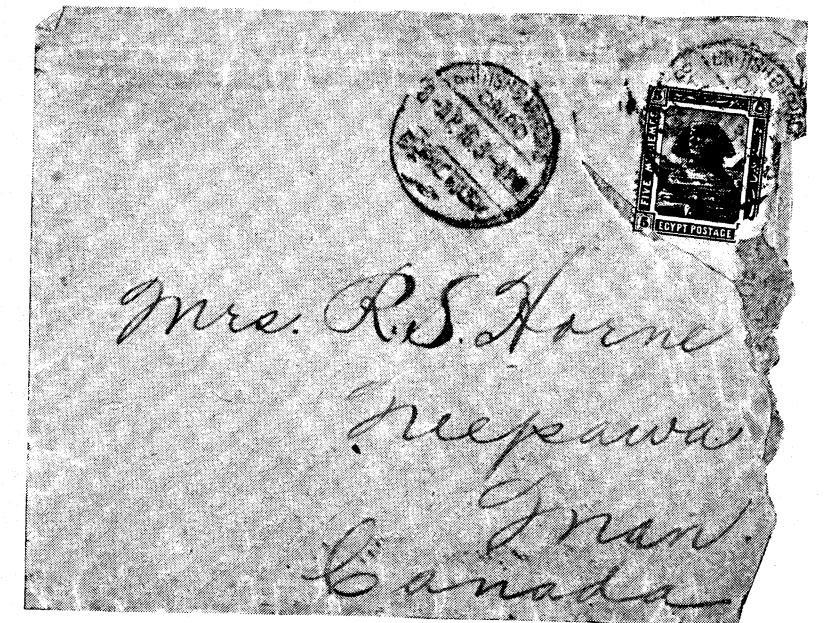 CAIRO
FIVE
EGYPT POSTAGE
Mrs. R. S. Horne
Neepawa
Man.
Canada